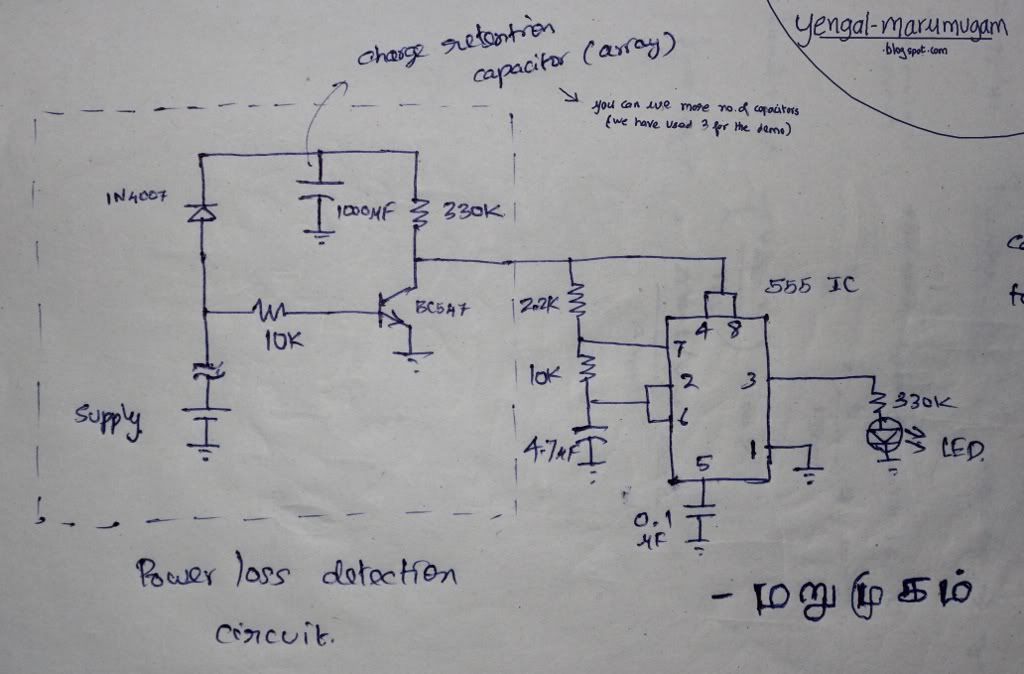 yengal-marumugam
.blogspot.com
charge retention
capacitor (array)
you can use more no. of capacitors
(we have used 3 for the demo)
1N4007
1000µF
330K
BC547
10K
Supply
2.2K
10K
4.7µF
555 IC
4 8
7
2
3
6
1
5
330K
LED.
0.1
µF
Power loss detection
circuit.
- மறுமுகம்